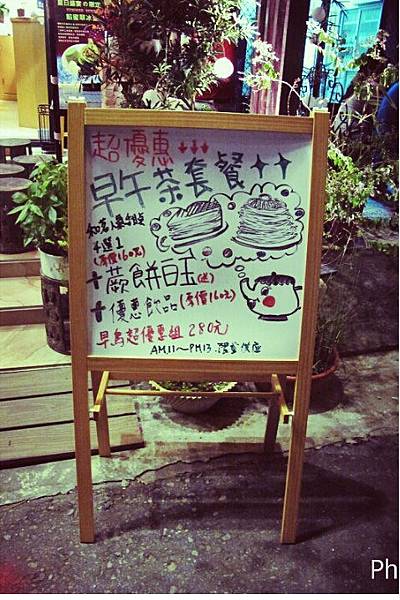 夏日盛宴の限定
超優惠↓↓↓
早午茶套餐
4選1
(原價160元)
+ 蕨餅白玉(冰)
+ 優惠飲品(原價160元)
早鳥超優惠組 280元
AM11～PM13
Ph